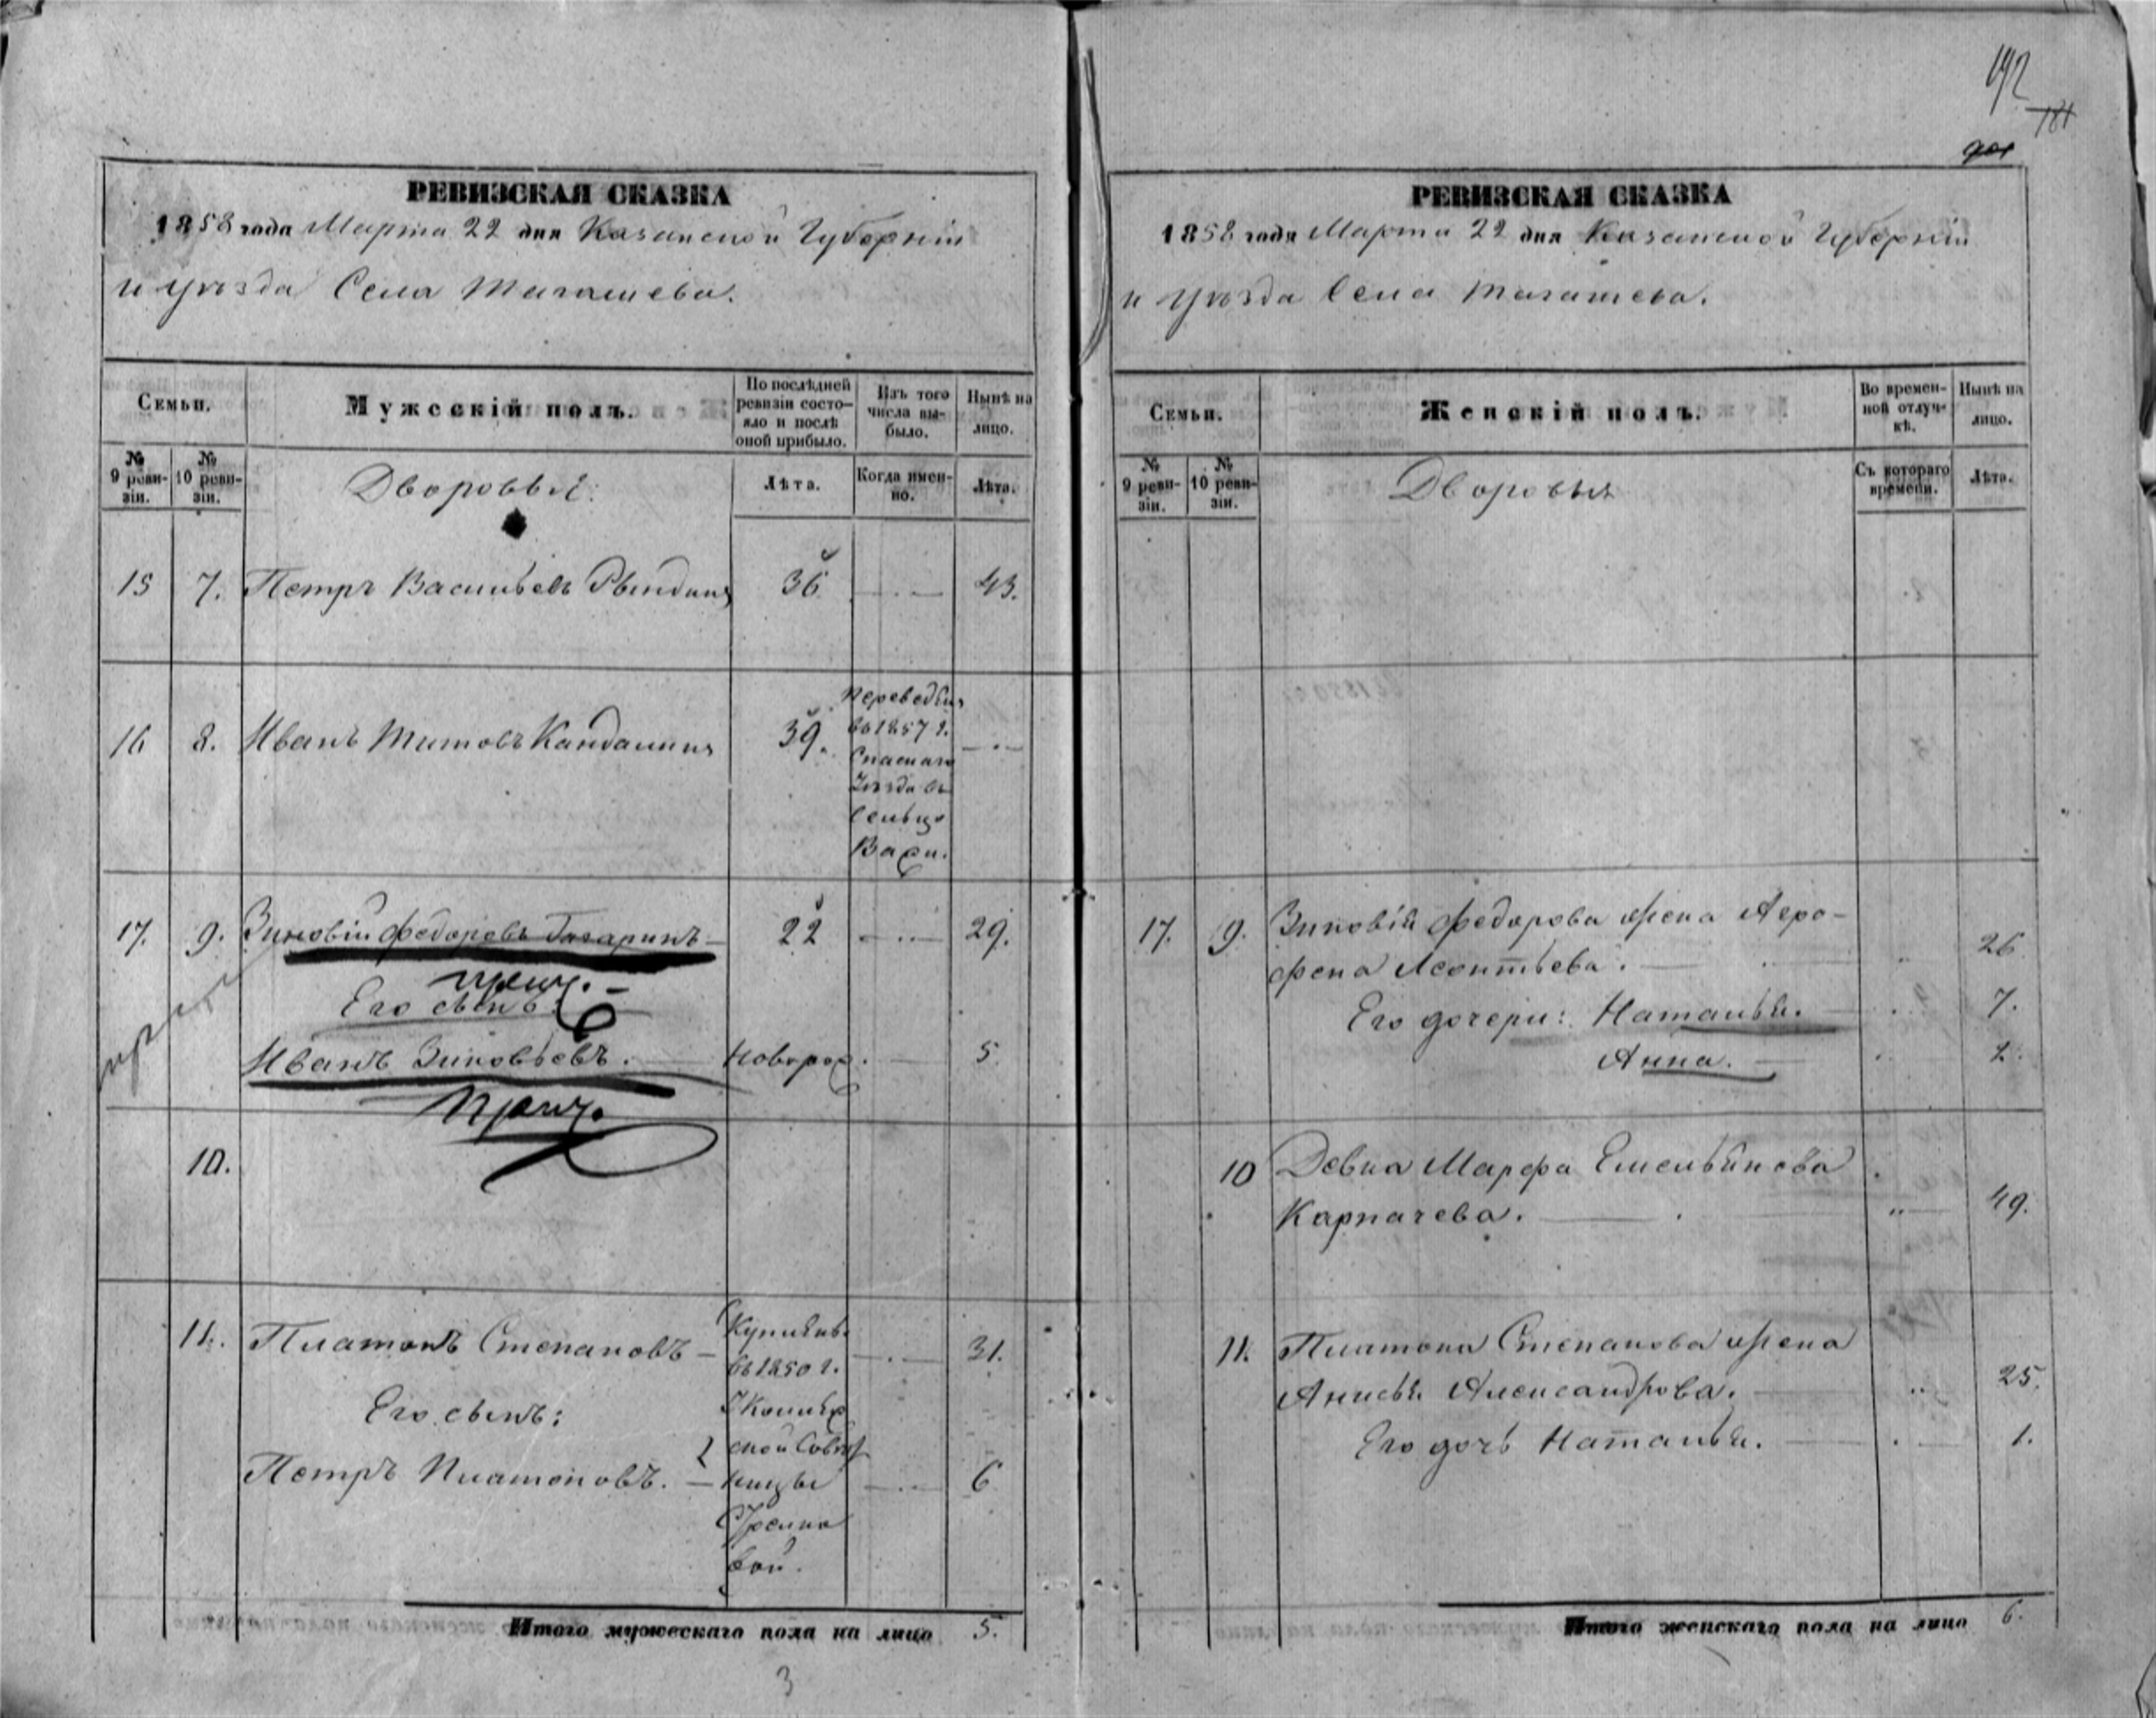 192
181
РЕВИЗСКАЯ СКАЗКА
1858 года Марта 22 дня Казанской Губерніи
и уѣзда Села Тагашева.
Семьи.
Мужескій полъ.
По послѣдней ревизіи состояло и послѣ оной прибыло.
Изъ того числа выбыло.
Нынѣ на лицо.
№ 9 ревизіи.
№ 10 ревизіи.
Дворовыя.
Лѣта.
Когда именно.
Лѣта.
15 7. Петръ Васильевъ Рындинъ 36 43.
16 8. Иванъ Титовъ Кандалинъ 39.
переведенъ
въ 1857 г.
Спасскаго
Уѣзда въ
Сельцо
17. 9. Зиновій Федоровъ Гагаринъ 22 29.
Его сынъ:
Иванъ Зиновьевъ. новорож. 5
10.
11. Платонъ Степановъ 31.
Купленъ
въ 1850 г.
Его сынъ:
Петръ Платоновъ. 6
Итого мужескаго пола на лицо 5.
3
РЕВИЗСКАЯ СКАЗКА
1858 года Марта 22 дня Казанской Губерніи
и уѣзда Села Тагашева.
Семьи.
Женскій полъ.
Во временной отлучкѣ.
Нынѣ на лицо.
№ 9 ревизіи.
№ 10 ревизіи.
Дворовыя
Съ котораго времени.
Лѣта.
17. 9. Зиновія Федорова жена Агро-
фена Леонтьева. 26
Его дочери: Наталья. 7.
Анна. 2.
10 Девка Марфа Емельянова
Карпачева. 49.
11. Платона Степанова жена
Анисья Александрова. 25.
Его дочь Наталья. 1.
Итого женскаго пола на лицо 6.